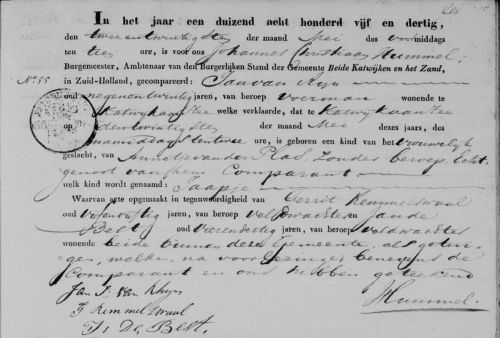 In het jaar een duizend acht honderd vijf en dertig,
den twee en twintigsten der maand Mei des voormiddags
ten tien ure, is voor ons Johannes Christiaan Hummel,
Burgemeester, Ambtenaar van den Burgerlijken Stand der Gemeente Beide Katwijken en het Zand,
in Zuid-Holland, gecompareerd: Jan van Rijn
No 55
oud negenentwintig jaren, van beroep voerman wonende te
Katwyk aan Zee welke verklaarde, dat te Katwyk aan Zee
op den twintigsten der maand Mei dezes jaars, des
namiddags ten twee ure, is geboren een kind van het vrouwelyk
geslacht, van van der Plas, zonder beroep Echt
genoot van hem Comparant
welk kind wordt genaamd: Jaapje
Waarvan acte opgemaakt in tegenwoordigheid van Gerrit Remmelswaal
oud vyfenvyftig jaren, van beroep Veldwachter en Jan de
Best oud vierendertig jaren, van beroep veldwachter
wonende beide binnen deze Gemeente, als getui-
gen, welke, na voorlezing, benevens de
Comparant en ons hebben geteekend
Jan van Rhyn
Remmelswaal
De Best.
Hummel.